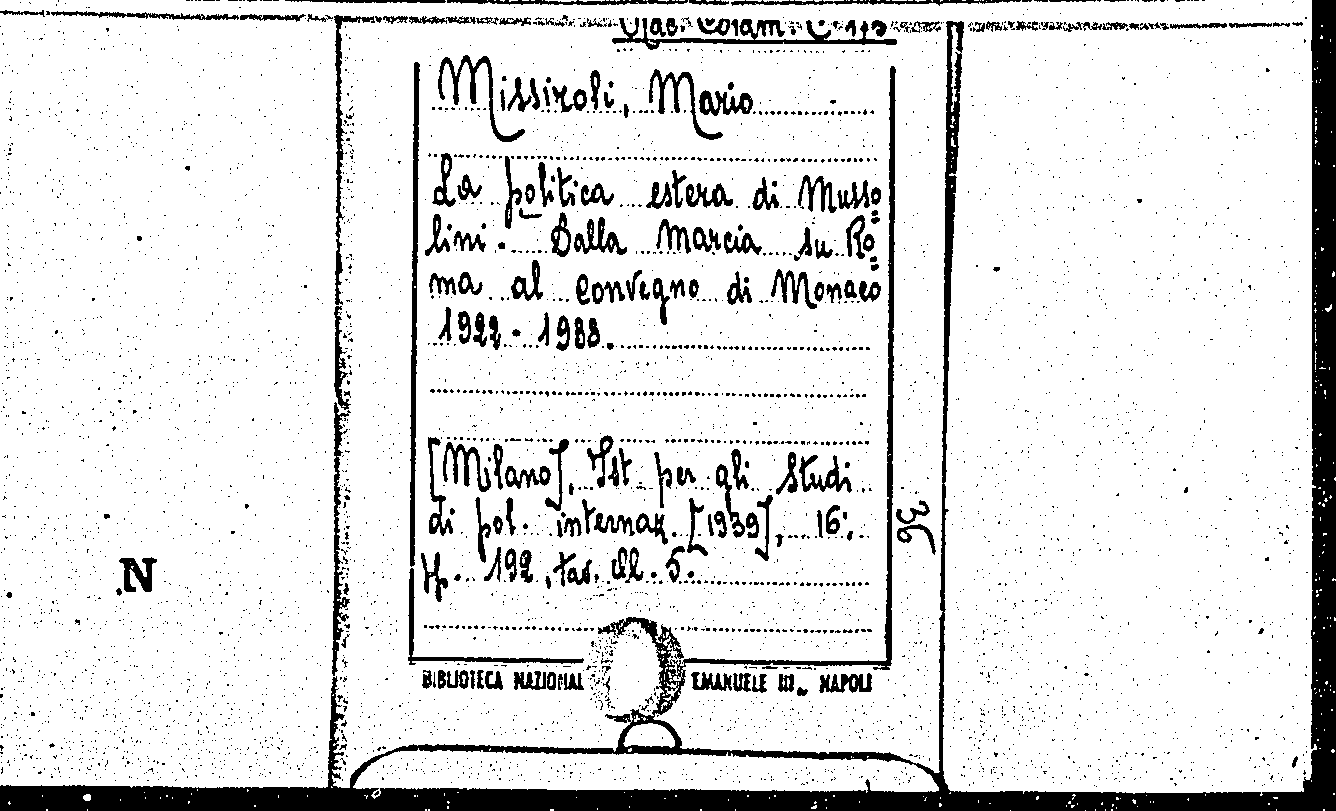 Missiroli, Mario
La politica estera di Musso=
lini. Dalla marcia su Ro=
ma al convegno di Monaco
1922-1938.
[Milano], Ist per gli Studi
di pol. internaz. [1939], 16°,
pp. 192, tav. ill. 5.
36
N
BIBLIOTECA NAZIONAL EMANUELE III„ NAPOLI